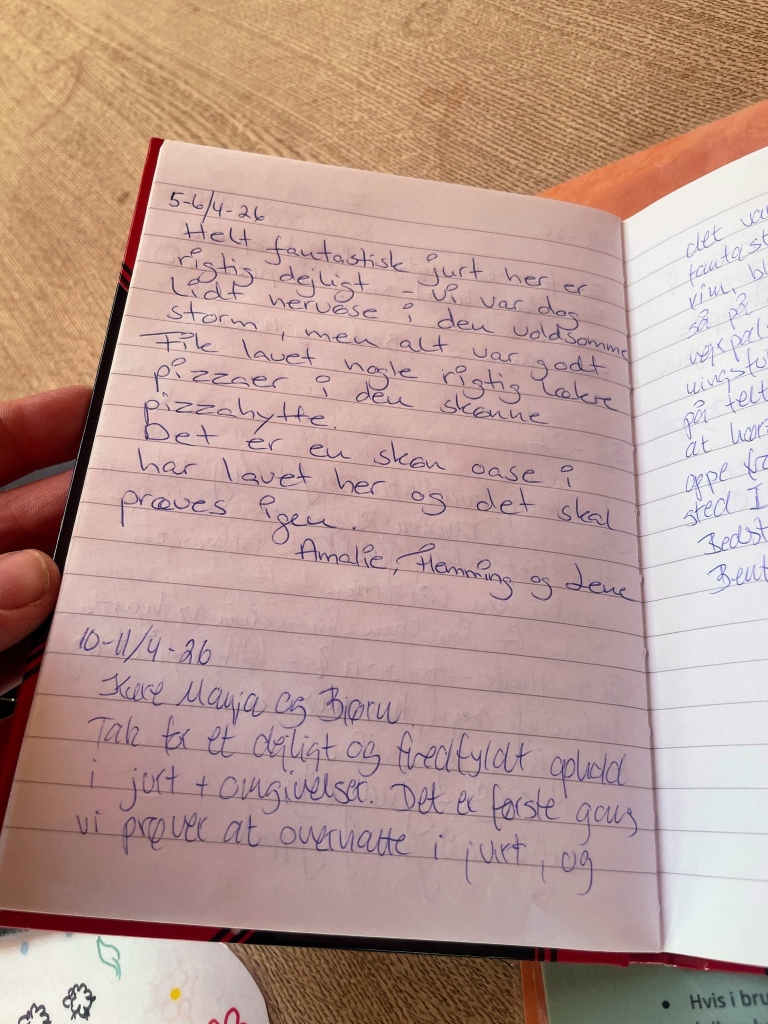 5-6/4-26
Helt fantastisk jurt her er
rigtig dejligt - vi var dog
lidt nervøse i den voldsomme
storm, men alt var godt
Fik lavet nogle rigtig lækre
pizzaer i den skønne
pizzahytte.
Det er en skøn oase i
har lavet her og det skal
prøves igen.
Amalie, Flemming og Lene
10-11/4-26
Kære Manja og Bjørn.
Tak for et dejligt og fredfyldt ophold
i jurt + omgivelser. Det er første gang
vi prøver at overnatte i jurt, og
det var
så på
på telt
at
sted I
Hvis i bru